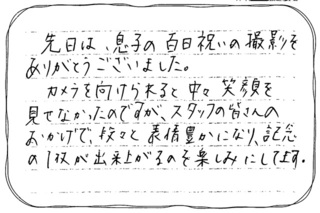 先日は、息子の百日祝いの撮影を
ありがとうございました。
カメラを向けられると中々笑顔を
見せなかったのですが、スタッフの皆さんの
おかげで、段々と表情豊かになり、記念
の1枚が出来上がるのを楽しみにしてます。